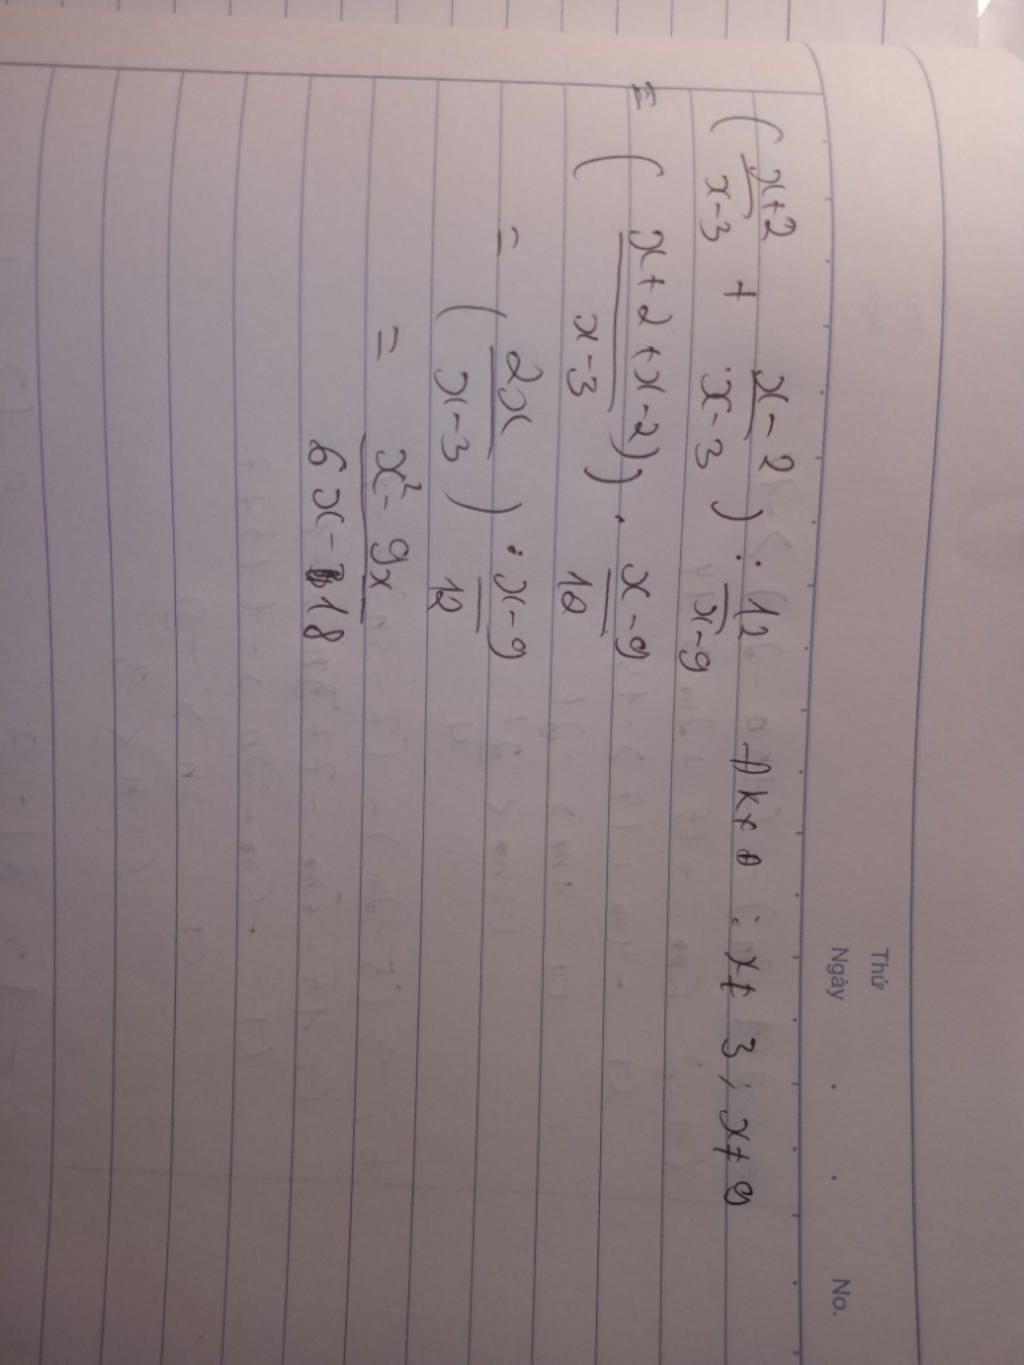 Thứ
Ngày . . No.
( x+2 / x-3 + x-2 / x-3 ) : 12 / x-9 ĐKXĐ : x ≠ 3 ; x ≠ 9
= ( x+2+x-2) / x-3 ) . x-9 / 12
= ( 2x / x-3 ) . x-9 / 12
= x² - 9x / 6x - 18